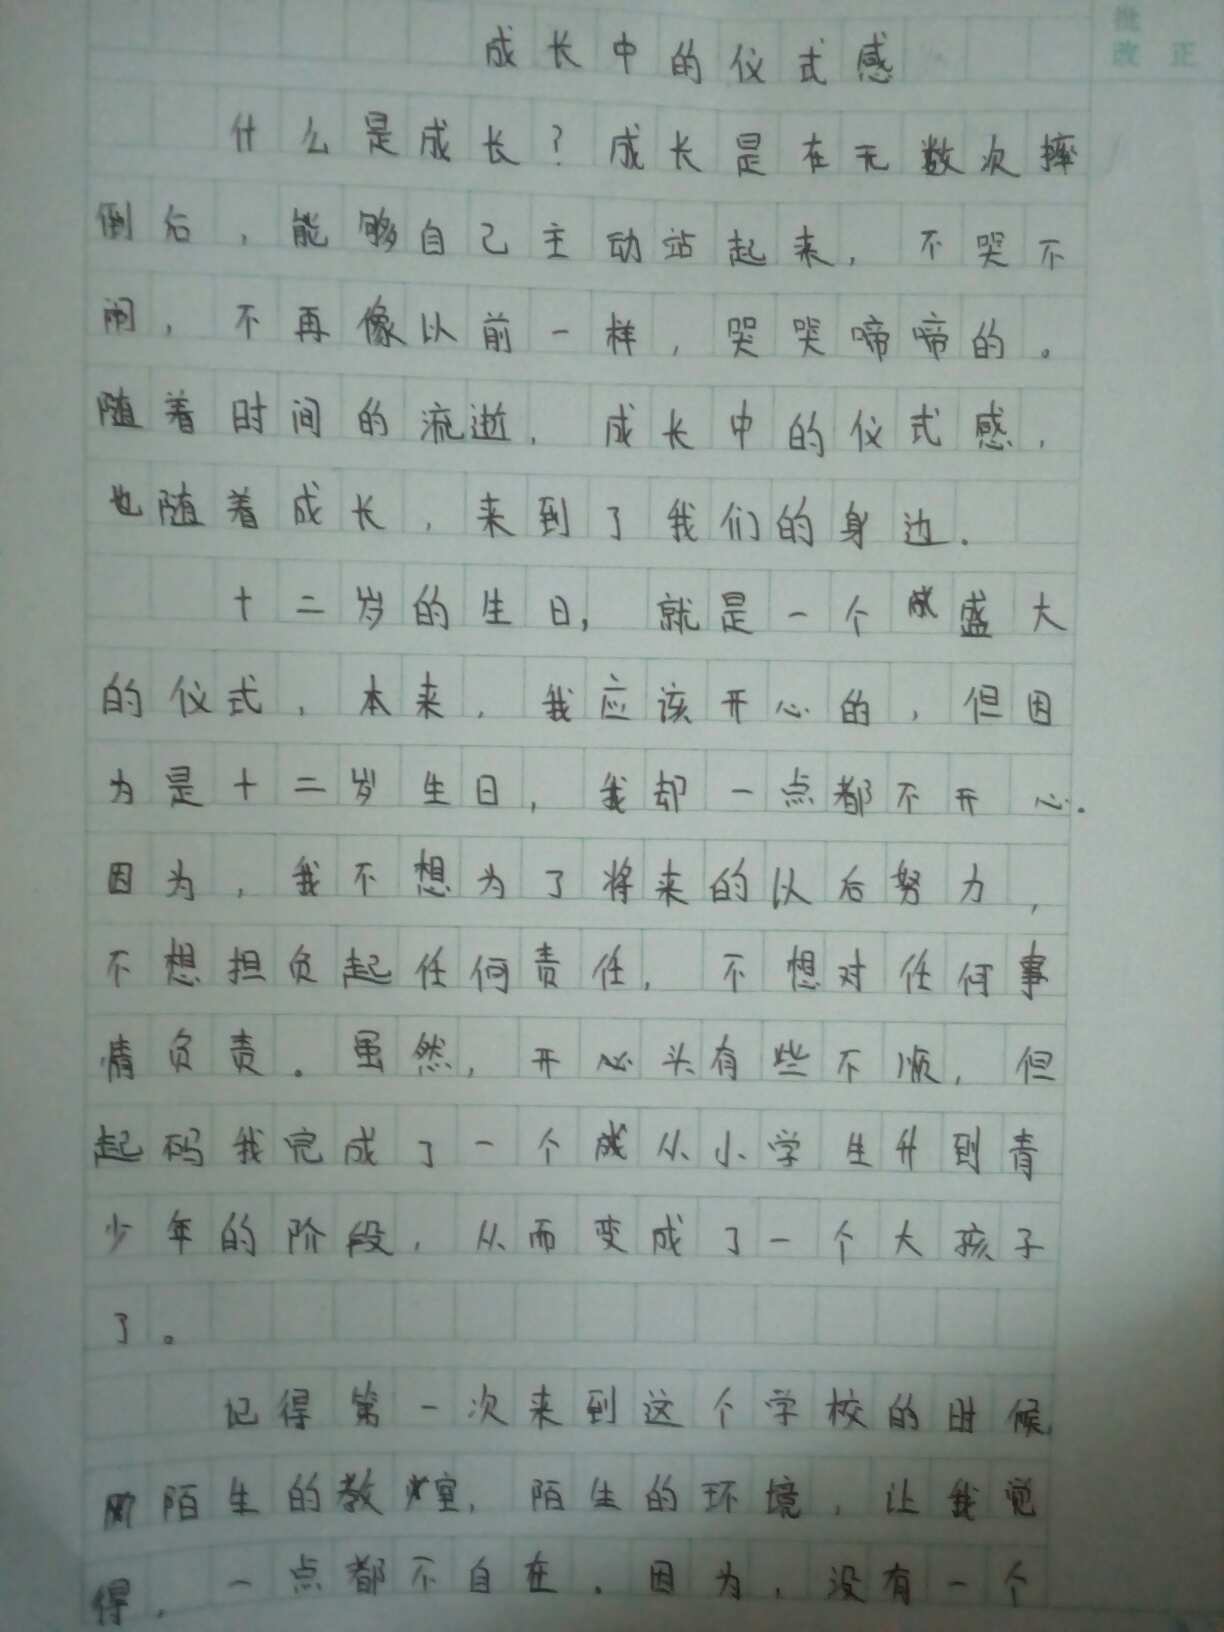 批
改 正
成长中的仪式感
什么是成长?成长是在无数次摔
倒后,能够自己主动站起来,不哭不
闹,不再像以前一样,哭哭啼啼的。
随着时间的流逝,成长中的仪式感,
也随着成长,来到了我们的身边.
十二岁的生日,就是一个盛大
的仪式,本来,我应该开心的,但因
为是十二岁生日,我却一点都不开心.
因为,我不想为了将来的以后努力,
不想担负起任何责任,不想对任何事
情负责。虽然,开心头有些不顺,但
起码我完成了一个成从小学生升到青
少年的阶段,从而变成了一个大孩子
了。
记得第一次来到这个学校的时候,
陌生的教室,陌生的环境,让我觉
得,一点都不自在.因为,没有一个